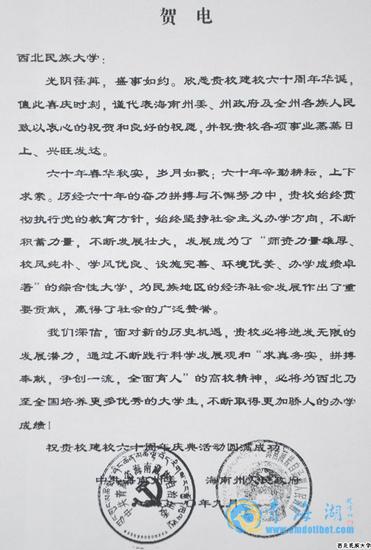 贺电
西北民族大学：
光阴荏苒，盛事如约。欣悉贵校建校六十周年华诞，
值此喜庆时刻，谨代表海南州委、州政府及全州各族人民
致以衷心的祝贺和良好的祝愿，并祝贵校各项事业蒸蒸日
上、兴旺发达。
六十年春华秋实，岁月如歌；六十年辛勤耕耘，上下
求索。历经六十年的奋力拼搏与不懈努力中，贵校始终贯
彻执行党的教育方针，始终坚持社会主义办学方向，不断
积蓄力量，不断发展壮大，发展成为了“师资力量雄厚、
校风纯朴、学风优良、设施完善、环境优美、办学成绩卓
著”的综合性大学，为民族地区的经济社会发展作出了重
要贡献，赢得了社会的广泛赞誉。
我们深信，面对新的历史机遇，贵校必将迸发无限的
发展潜力，通过不断践行科学发展观和“求真务实，拼搏
奉献，争创一流，全面育人”的高校精神，必将为西北乃
至全国培养更多优秀的大学生，不断取得更加骄人的办学
成绩！
祝贵校建校六十周年庆典活动圆满成功！
中共 海南州人民政府
年九月
青海湖
amdotibet.com
西北民族大学